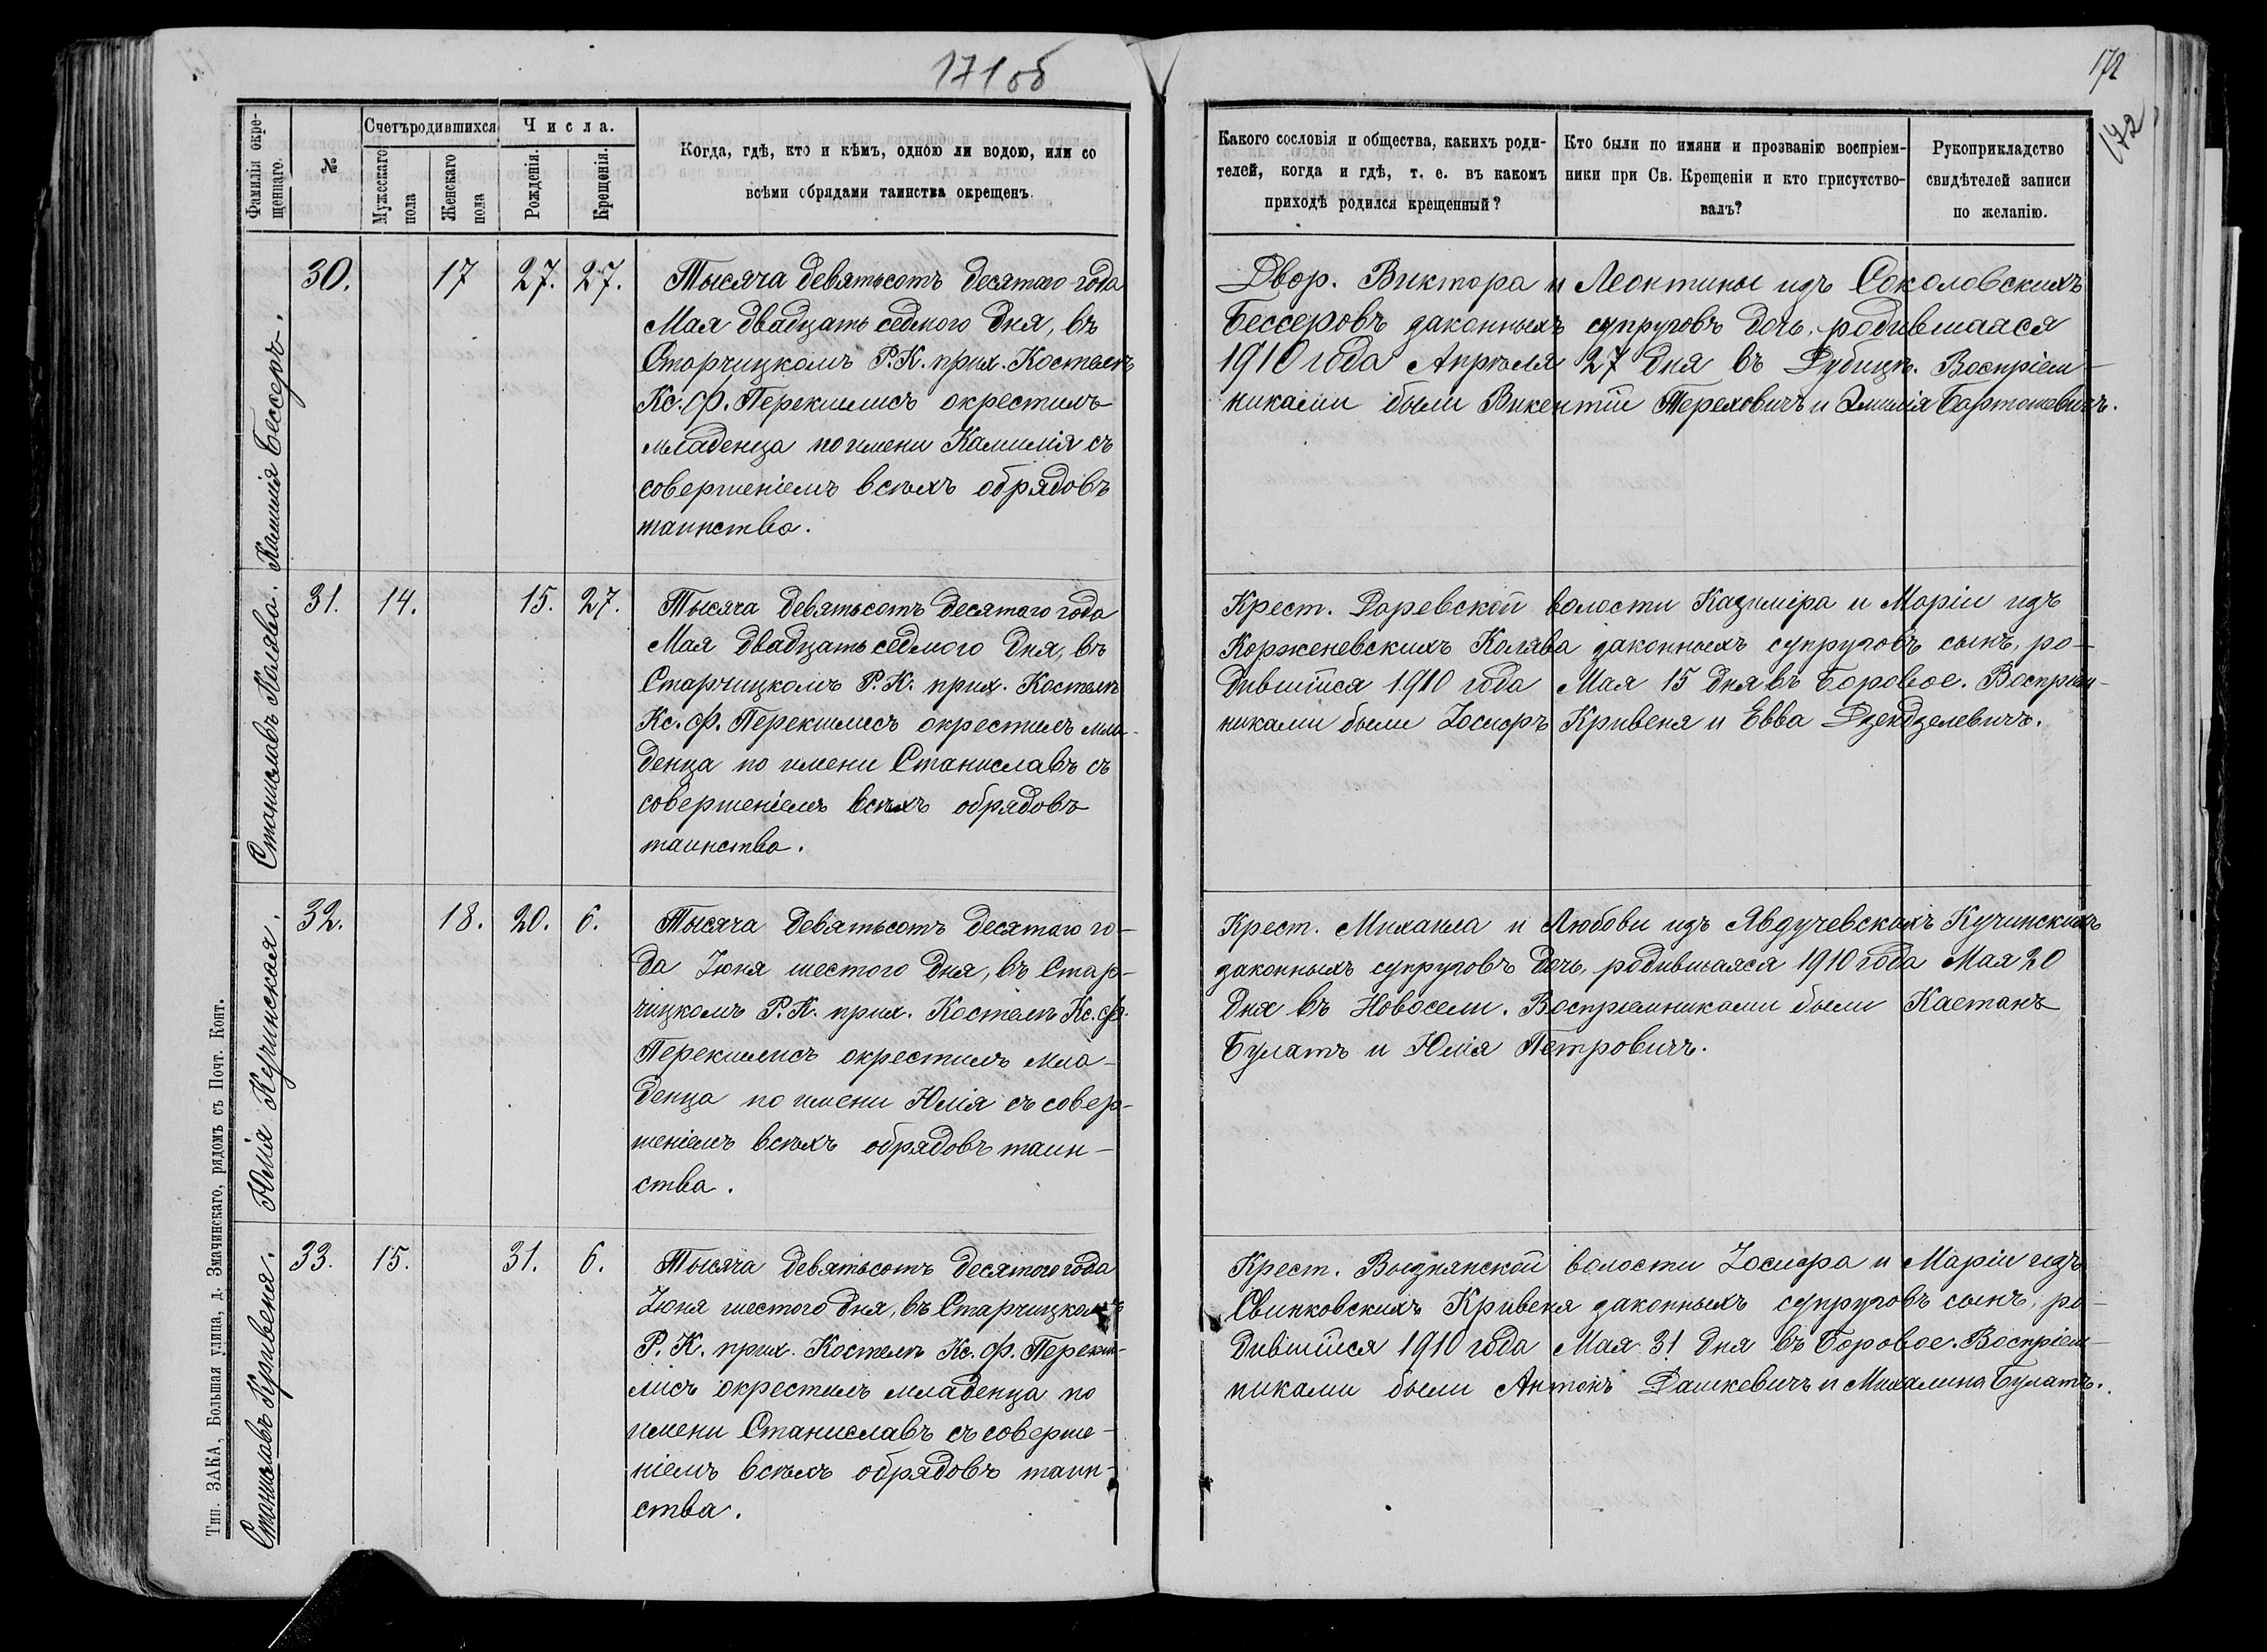 171 об
172
172
Фамилія окре-
щеннаго.
№
Счетъ родившихся
Мужескаго
пола
Женскаго
пола
Числа.
Рожденія.
Крещенія.
Когда, гдѣ, кто и кѣмъ, одною ли водою, или со
всѣми обрядами таинства окрещенъ.
Какого сословія и общества, какихъ роди-
телей, когда и гдѣ, т. е. въ какомъ
приходѣ родился крещенный?
Кто были по имяни и прозванію воспріем-
ники при Св. Крещеніи и кто присутство-
валъ?
Рукоприкладство
свидѣтелей записи
по желанію.
Камилія Бессеръ.
30.
17
27.
27.
Тысяча девятьсотъ десятаго года
Мая двадцать седмого дня, въ
Старчицкомъ Р.К. прих. Костелѣ
Кс. Ф. Перекшлисъ окрестилъ
младенца по имени Камилія съ
совершеніемъ всѣхъ обрядовъ
таинства.
Двор. Виктора и Леонтины изъ Соколовскихъ
Бессеровъ законныхъ супруговъ дочь, родившаяся
1910 года Апрѣля 27 дня въ Дубицѣ. Воспріем-
никами были Викентій Тереховичъ и Эмилія Бартошевичъ.
Станиславъ Колява.
31.
14.
15.
27.
Тысяча девятьсотъ десятаго года
Мая двадцать седмого дня, въ
Старчицкомъ Р.К. прих. Костелѣ
Кс. Ф. Перекшлисъ окрестилъ мла-
денца по имени Станиславъ съ
совершеніемъ всѣхъ обрядовъ
таинства.
Крест. Даревской волости Казиміра и Маріи изъ
Корженевскихъ Колява законныхъ супруговъ сынъ, ро-
дившійся 1910 года Мая 15 дня въ Боровое. Воспріем-
никами были Іосифъ Кривеня и Евва Дзендзелевичъ.
Юлія Кучинская.
32.
18.
20.
6.
Тысяча девятьсотъ десятаго го-
да Іюня шестого дня, въ Стар-
чицкомъ Р.К. прих. Костелѣ Кс. Ф.
Перекшлисъ окрестилъ мла-
денца по имени Юлія съ совер-
шеніемъ всѣхъ обрядовъ таин-
ства.
Крест. Михаила и Любови изъ Явдучевскихъ Кучинскихъ
законныхъ супруговъ дочь, родившаяся 1910 года Мая 20
дня въ Новосели. Воспріемниками были Каетанъ
Булатъ и Юлія Петровичъ.
Станиславъ Кривеня.
33.
15.
31.
6.
Тысяча девятьсотъ десятаго года
Іюня шестого дня, въ Старчицкомъ
Р.К. прих. Костелѣ Кс. Ф. Перекш-
лисъ окрестилъ младенца по
имени Станиславъ съ соверше-
ніемъ всѣхъ обрядовъ таин-
ства.
Крест. Вызнянской волости Іосифа и Маріи изъ
Свинковскихъ Кривеня законныхъ супруговъ сынъ, ро-
дившійся 1910 года Мая 31 дня въ Боровое. Воспріем-
никами были Антонъ Дашкевичъ и Михалина Булатъ.
Тип. ЗАКА, Большая улица, д. Змачинскаго, рядомъ съ Почт. Конт.